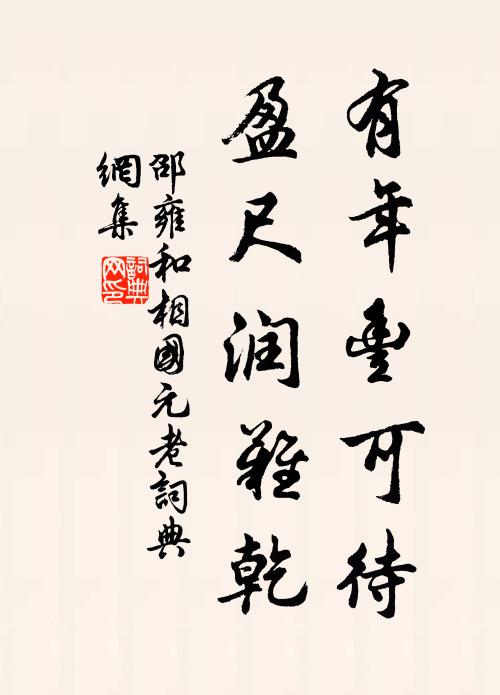 有年豐可待
盈尺润難乾
邵雍和相國元老詞典
網集
詞典
网印